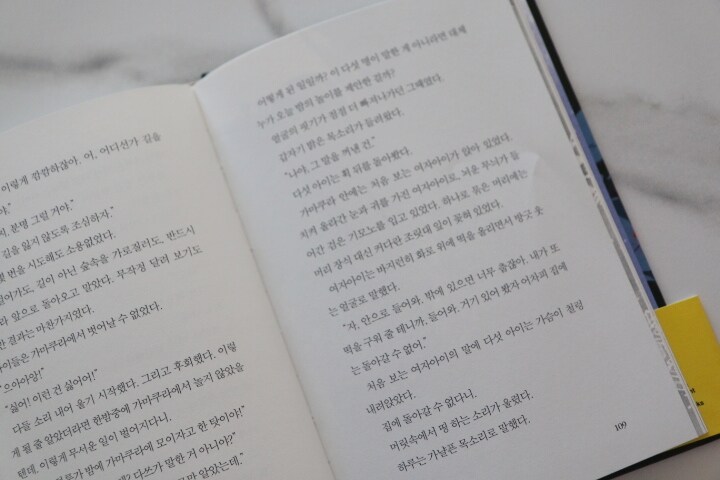 이렇게 컴컴하잖아. 어, 어디선가 길을
야."
분명 그럴 거야."
길을 잃지 않도록 조심하자."
번을 시도해도 소용없었다.
걸어가도, 길이 아닌 숲속을 가로질러도, 반드시
앞으로 돌아오고 말았다. 무작정 달려 보기도
결과는 마찬가지였다.
아이들은 가마쿠라에서 벗어날 수 없었다.
"으아아앙!"
"싫어! 이런 건 싫어어!"
다들 소리 내어 울기 시작했다. 그리고 후회했다. 이렇
게 될 줄 알았더라면 한밤중에 가마쿠라에서 놀지 않았을
텐데. 이렇게 무서운 일이 벌어지다니.
밤에 가마쿠라에 모이자고 한 탓이야!"
다쓰가 말한 거 아니야?"
알았는데."
이렇게 된 일일까? 이 다섯 명이 말한 게 아니라면 대체
누가 오늘 밤의 놀이를 제안한 걸까?
얼굴의 핏기가 점점 더 빠져나가던 그때였다.
갑자기 밝은 목소리가 들려왔다.
"나야, 그 말을 꺼낸 건."
다섯 아이는 휙 뒤를 돌아봤다.
가마쿠라 안에는 처음 보는 여자아이가 앉아 있었다.
치켜 올라간 눈과 귀를 가진 여자아이로, 저울 무늬가 들
어간 검은 기모노를 입고 있었다. 하나로 묶은 머리에는
머리 장식 대신 커다란 조릿대 잎이 꽂혀 있었다.
여자아이는 바지런히 화로 위에 떡을 올리면서 방긋 웃
는 얼굴로 말했다.
"자, 안으로 들어와. 밖에 있으면 너무 춥잖아. 내가 또
떡을 구워 줄 테니까. 들어와. 거기 있어 봤자 어차피 집에
는 돌아갈 수 없어."
처음 보는 여자아이의 말에 다섯 아이는 가슴이 철렁
내려앉았다.
집에 돌아갈 수 없다니.
머릿속에서 띵 하는 소리가 울렸다.
하루는 가냘픈 목소리로 말했다.
109